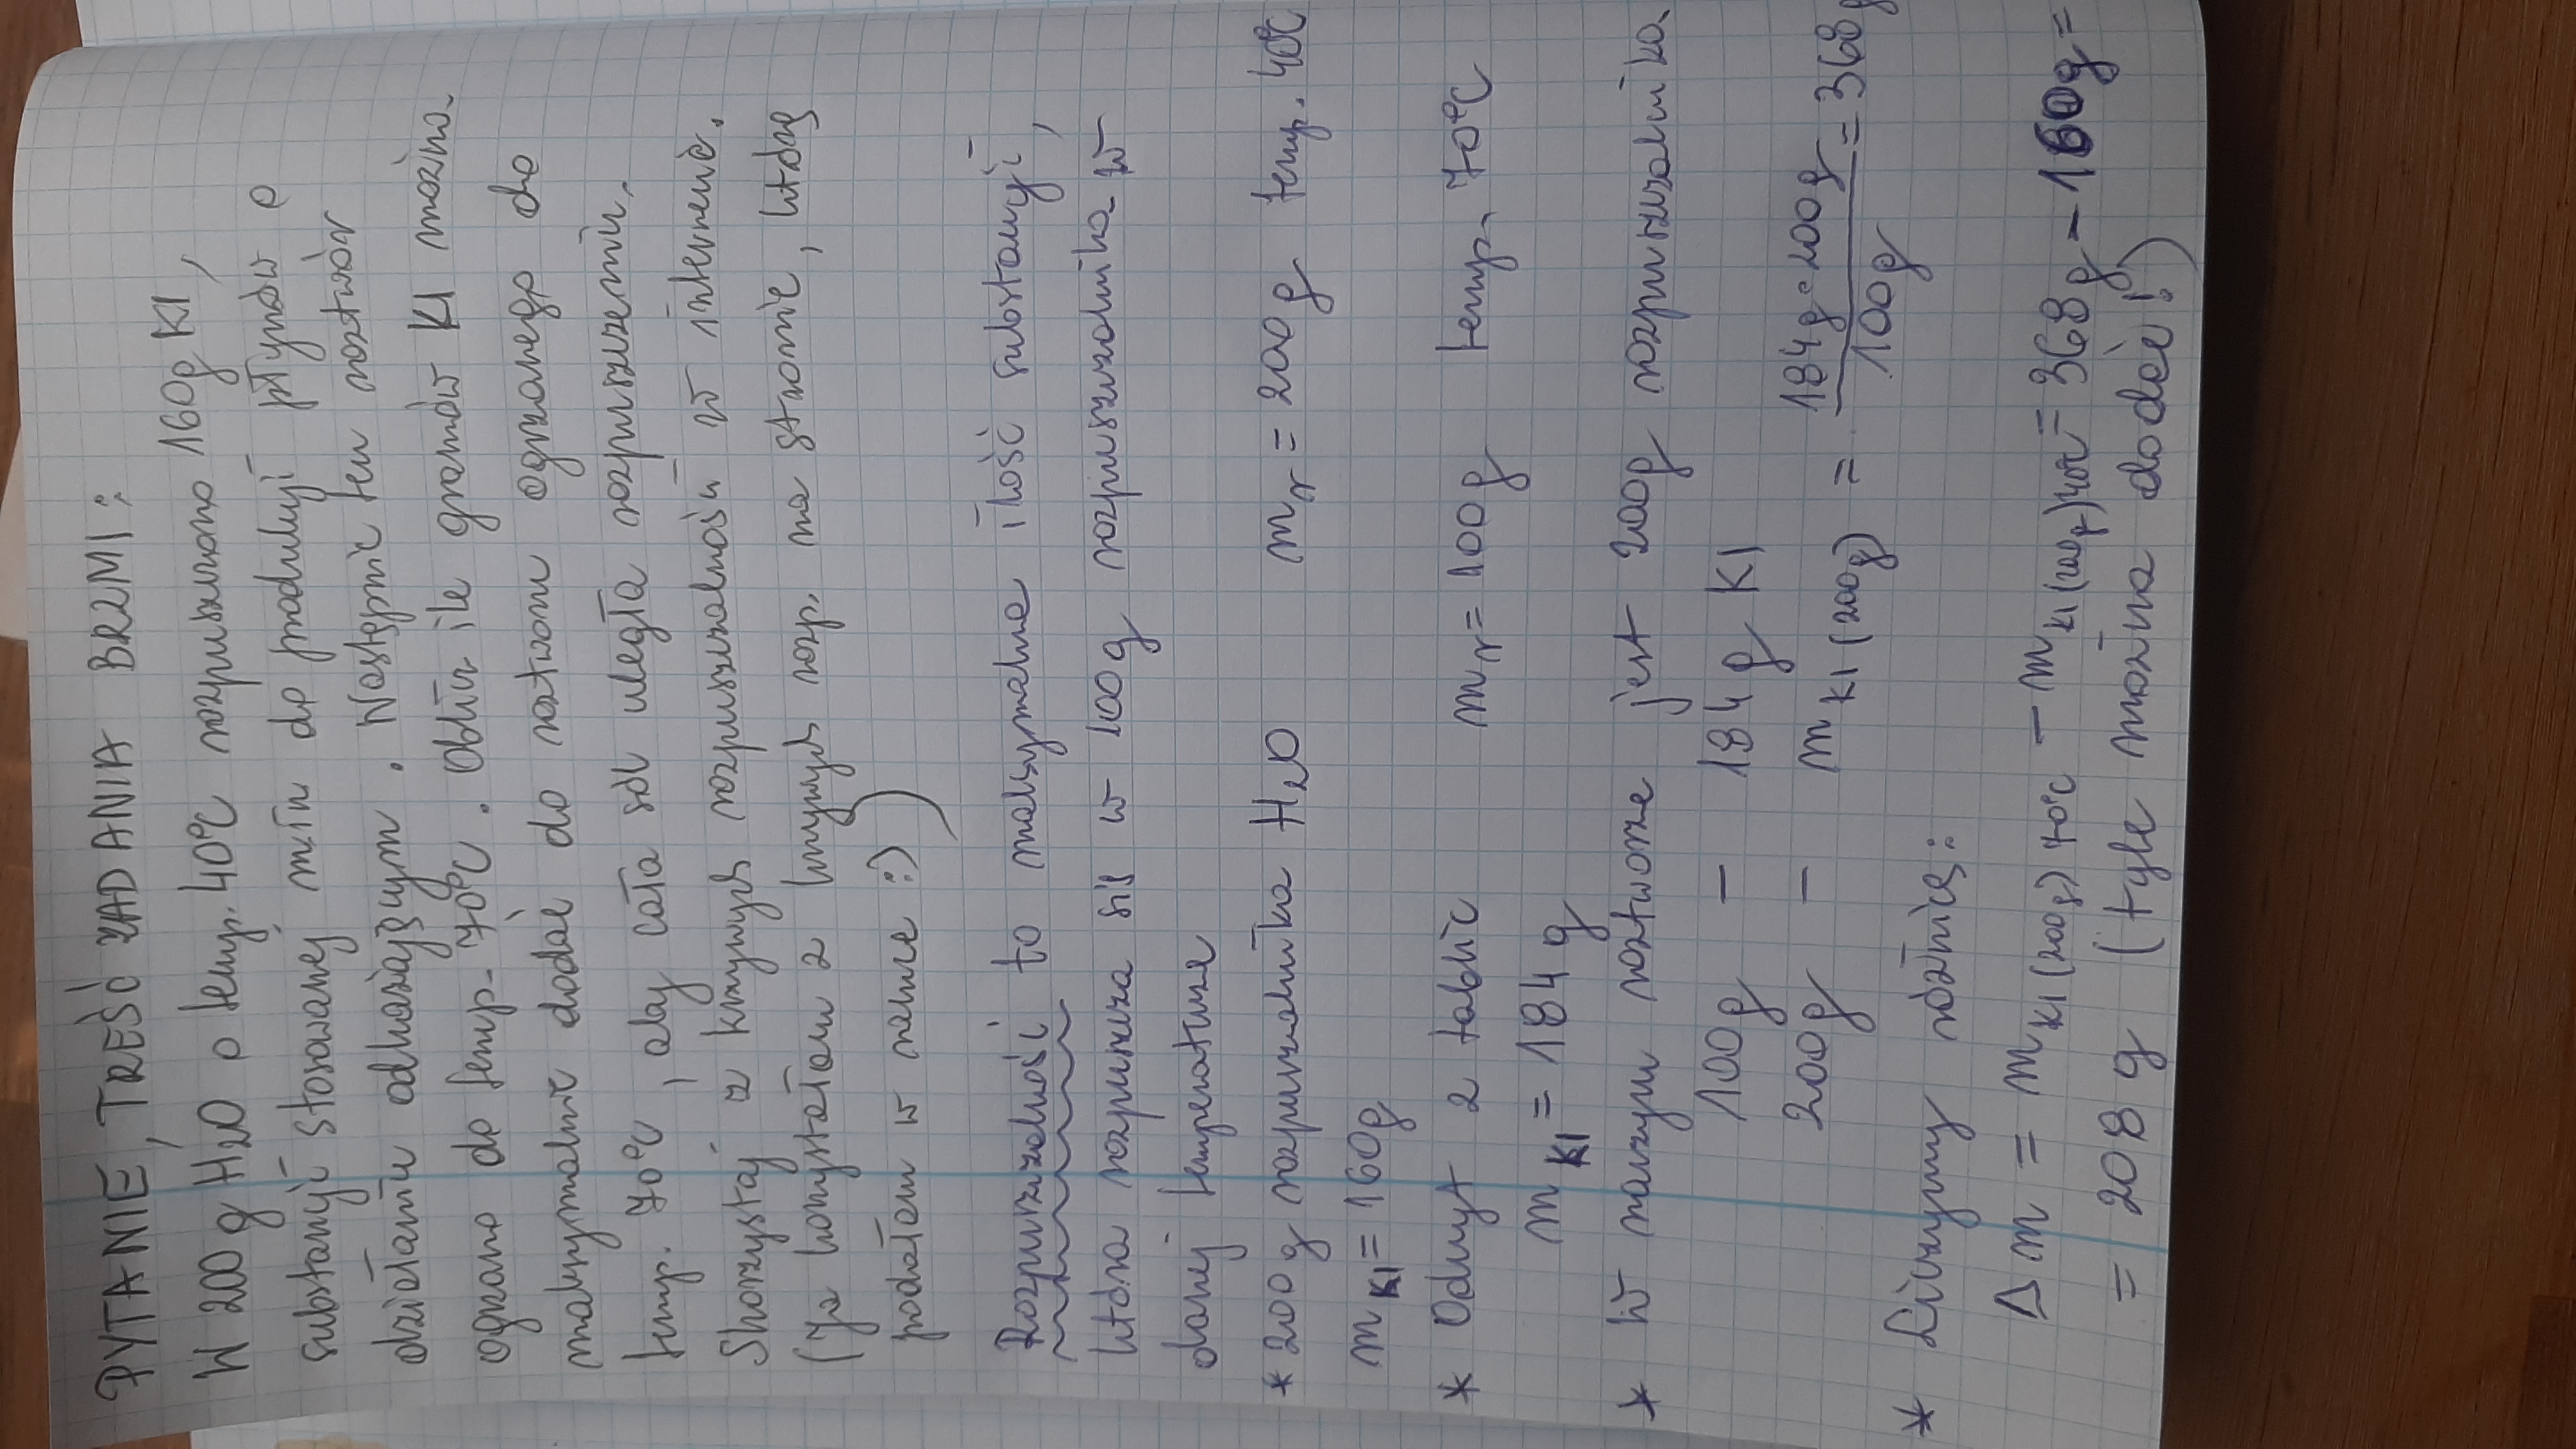 PYTANIE, TREŚĆ ZADANIA BRZMI:
W 200 g H2O o temp. 40°C rozpuszczono 160g KI,
substancji stosowanej m.in do produkcji płynów o
działaniu odkażającym. Następnie ten roztwór
ogrzano do temp. 70°C. Oblicz ile gramów KI można
maksymalnie dodać do roztworu ogrzanego do
temp. 70°C, aby cała sól uległa rozpuszczeniu.
Skorzystaj z krzywych rozpuszczalności w internecie.
(Ja korzystałam z krzywych rozp. na stronie, którą
podałam w ramce :))
Rozpuszczalność to maksymalna ilość substancji,
która rozpuszcza się w 100g rozpuszczalnika w
danej temperaturze
* 200 g rozpuszczalnika H2O mr = 200g temp. 40°C
mKI = 160g
* Odczyt z tablic mr = 100g temp. 70°C
mKI = 184 g
* W naszym roztworze jest 200g rozpuszczalnika
100g – 184 g KI
200g – mKI (200g) = 184g · 200g / 100g = 368g
* Liczymy różnicę:
Δm = mKI (200g) 70°C – mKI (200g) 40°C = 368g – 160g =
= 208 g (tyle można dodać!)